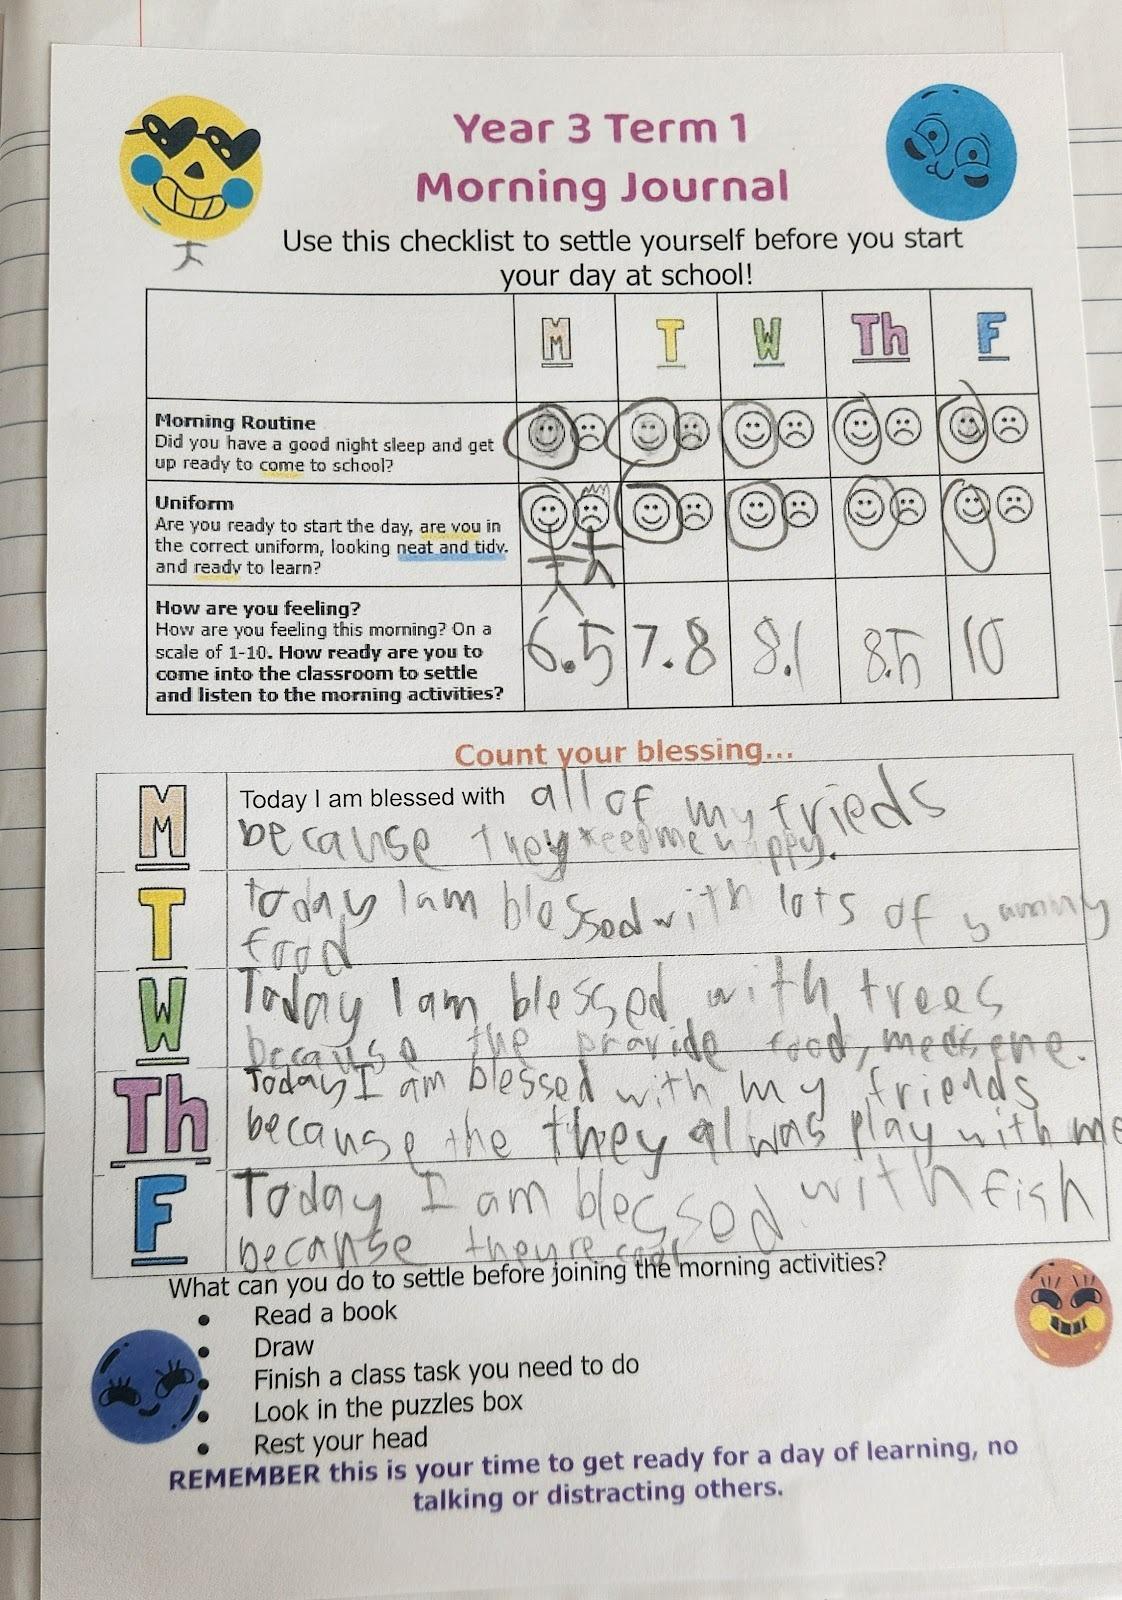 Year 3 Term 1
Morning Journal
Use this checklist to settle yourself before you start
your day at school!
M T W Th F
Morning Routine
Did you have a good night sleep and get
up ready to come to school?
Uniform
Are you ready to start the day, are you in
the correct uniform, looking neat and tidy.
and ready to learn?
How are you feeling?
How are you feeling this morning? On a
scale of 1-10. How ready are you to
come into the classroom to settle
and listen to the morning activities?
6.5 7.8 8.1 8.5 10
Count your blessing...
M
Today I am blessed with all of my frieds
because they keep me happy.
T
today I am blessed with lots of yammy
food
W
Today I am blessed with trees
because the provide food, medicine.
Th
Today I am blessed with my friends
because the they alwas play with me
F
Today I am blessed with fish
because they're cool
What can you do to settle before joining the morning activities?
• Read a book
• Draw
• Finish a class task you need to do
• Look in the puzzles box
• Rest your head
REMEMBER this is your time to get ready for a day of learning, no
talking or distracting others.